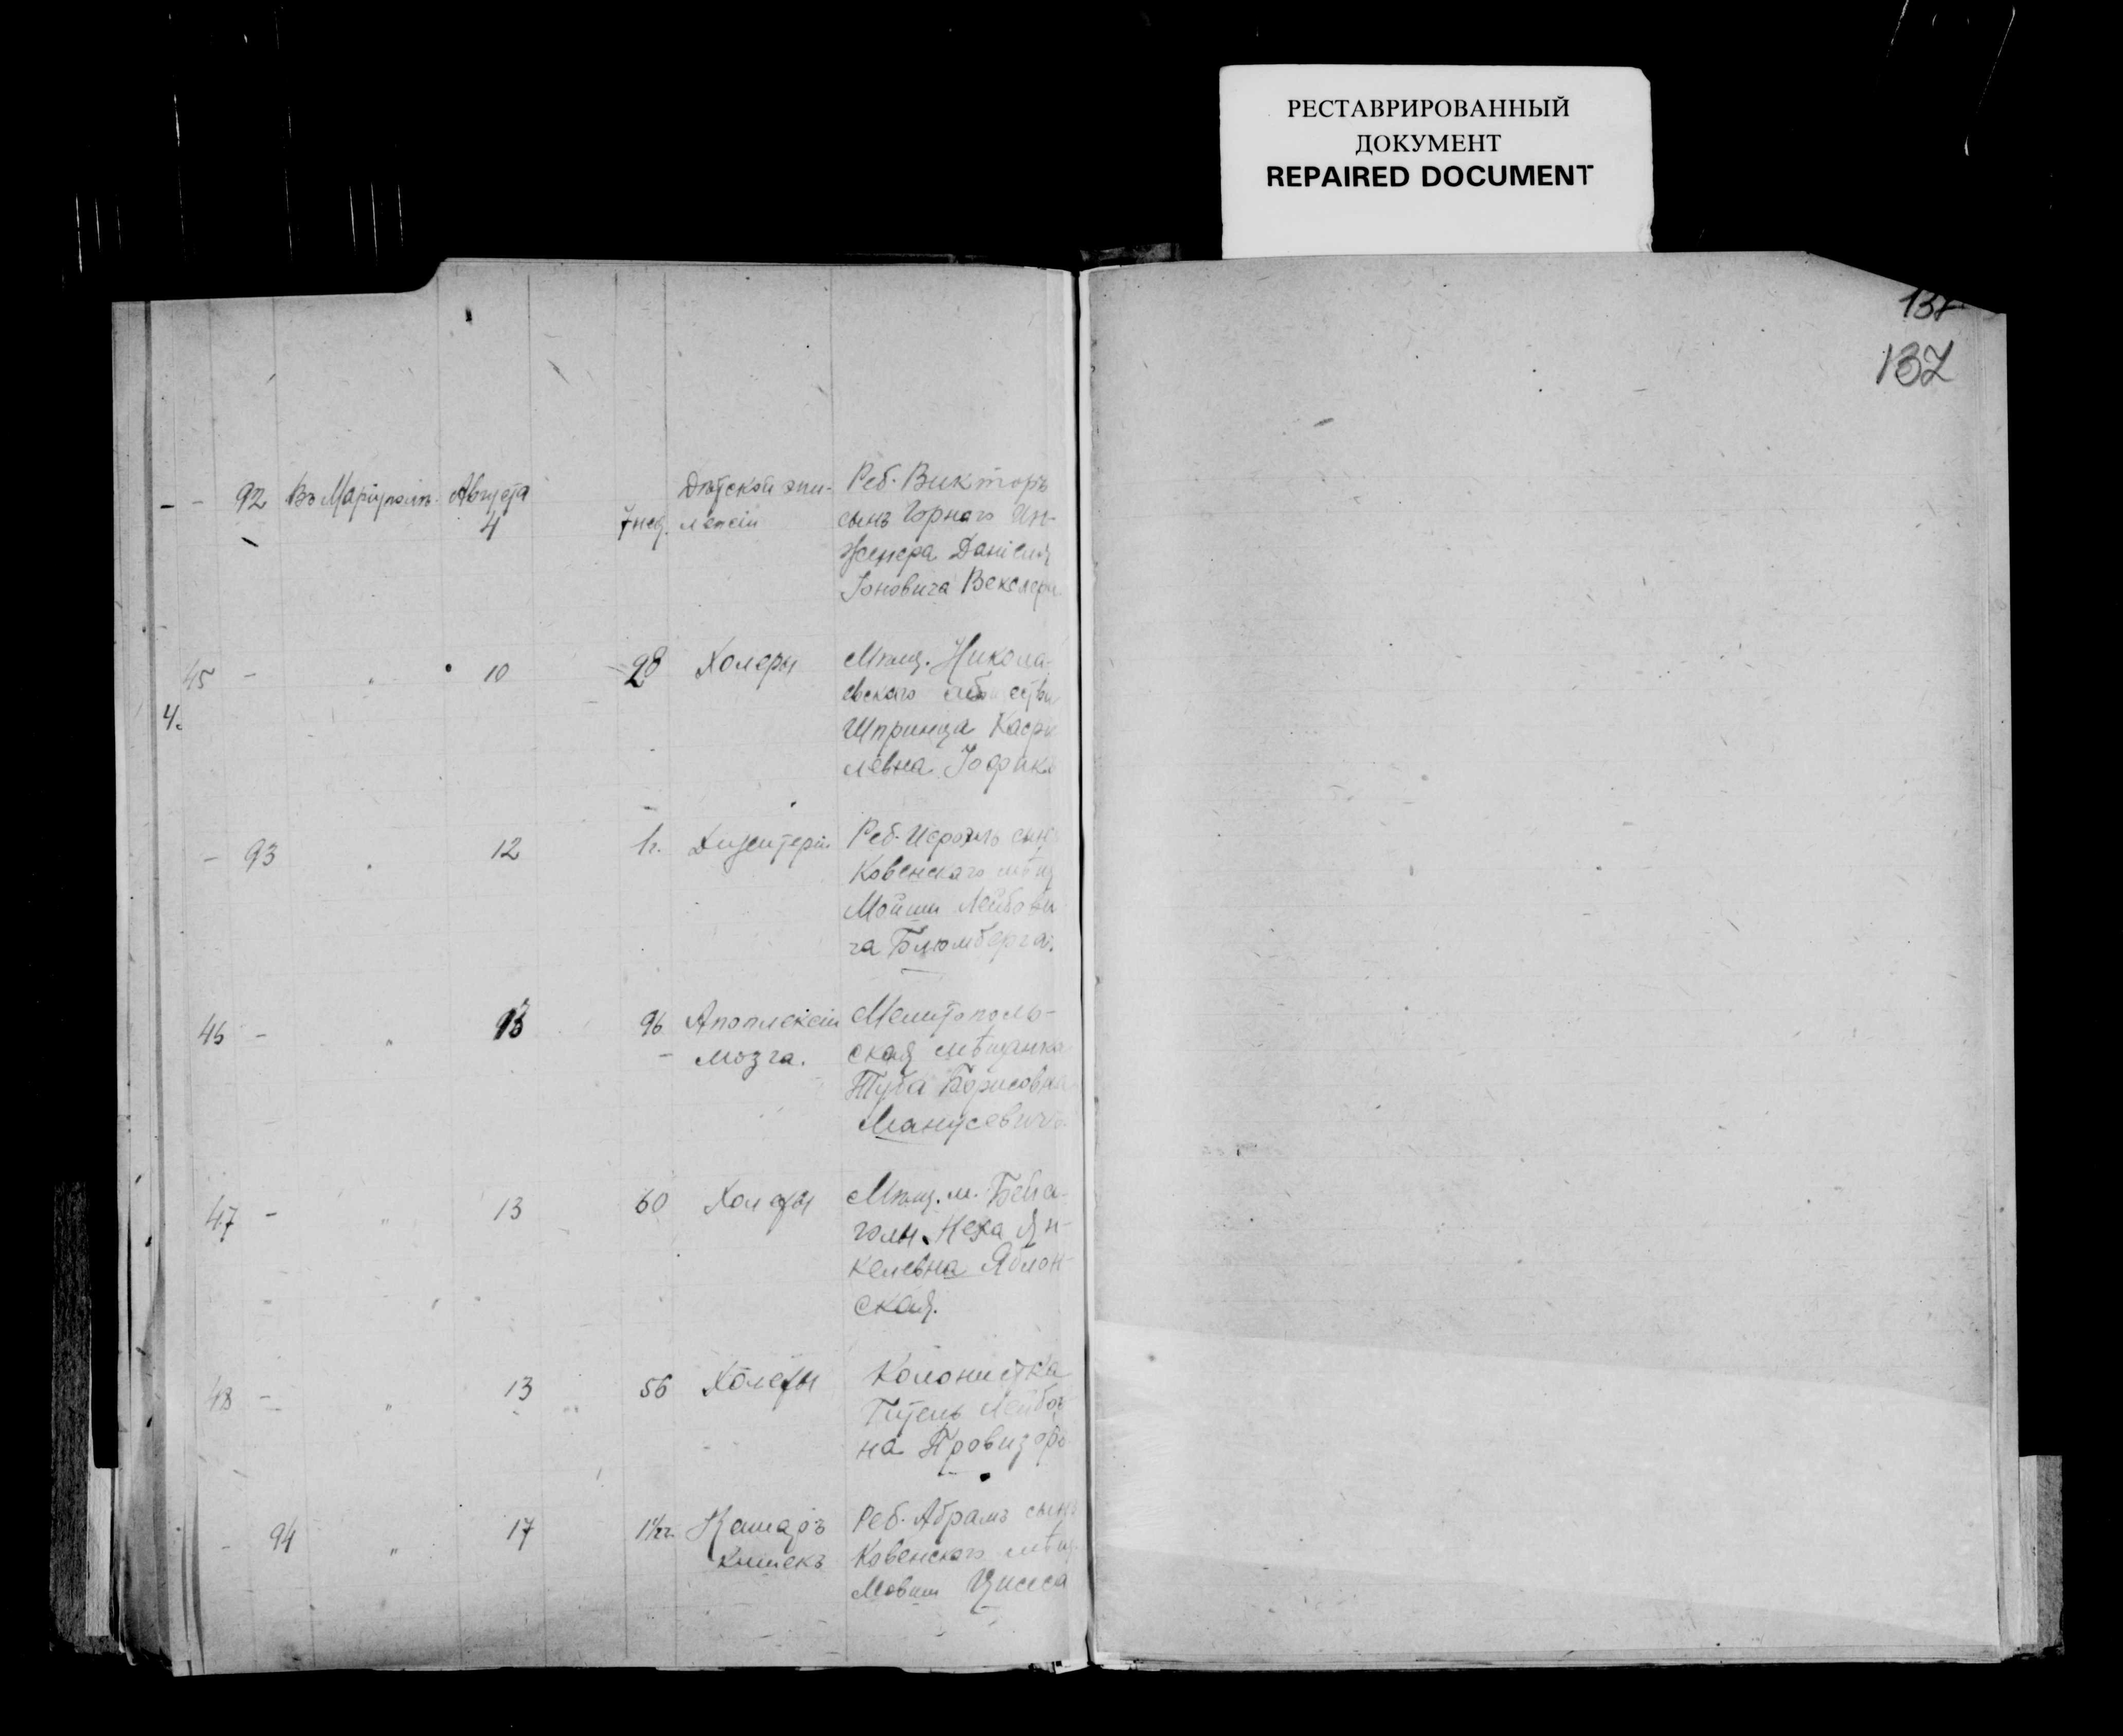 РЕСТАВРИРОВАННЫЙ
ДОКУМЕНТ
REPAIRED DOCUMENT
137
- - 92 Въ Маріуполѣ Августа 4 7 нед. Дѣтской эпи-
лепсіи
Реб. Викторъ
сынъ Горнаго Ин-
женера Даніеля
Іоновича Векслера
45 - " 10 28 Холеры
4.
Мѣщ. Никола-
евскаго общества
Шпринца Касри
левна Іоффикъ
- 93 " 12 1 г. Дизентеріи
Реб. Исроэль сынъ
Ковенскаго мѣщ
Мойши Лейбови
ча Блюмберга.
46 - " 13 96 Апоплексіи
- мозга.
Мелитополь-
ская мѣщанка
Туба Борисовна
Манусевичъ
47 - " 13 60 Холеры
Мѣщ. м. Бейса-
голы Неха Ян-
келевна Яблон-
ская.
48 - " 13 56 Холеры
Колонистка
Гитель Лейбов
на Провизоръ
- 94 " 17 1½ г. Катаръ
кишекъ
Реб. Абрамъ сынъ
Ковенскаго мѣщ.
Мовши Цисса